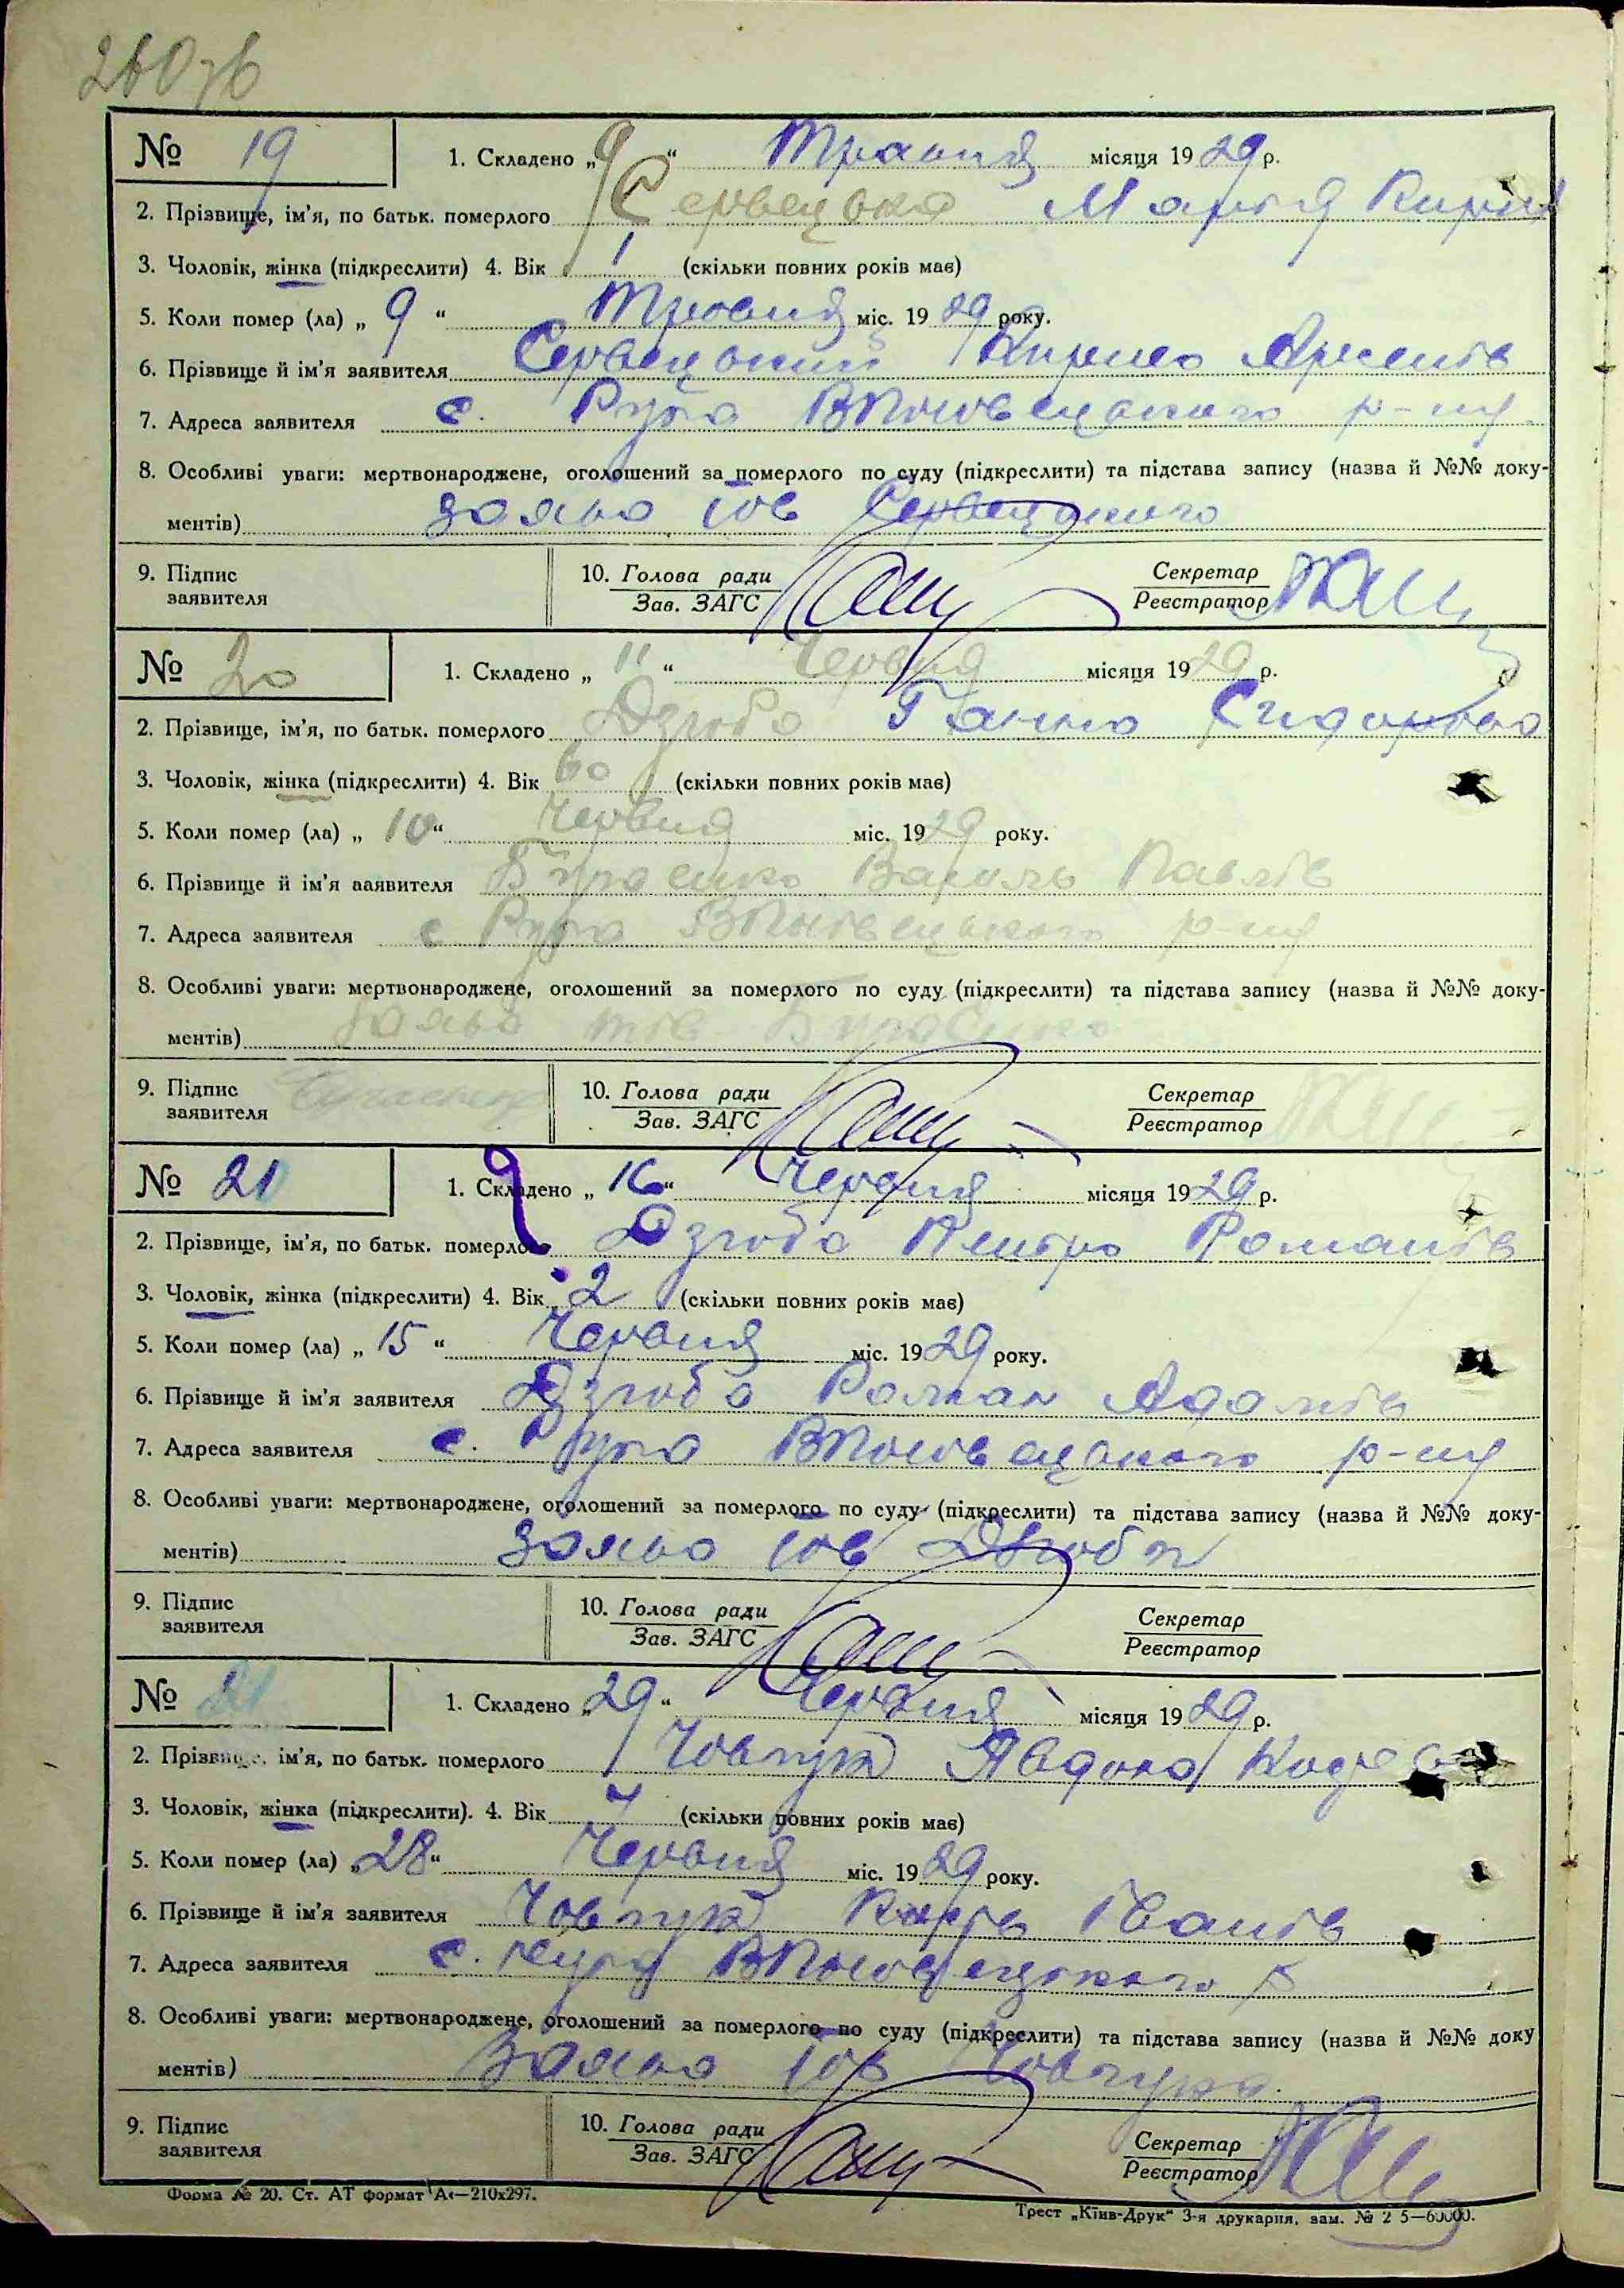 260зв
№ 19 1. Складено „9“ Травня місяця 1929 р.
2. Прізвище, ім'я, по батьк. померлого Сервецька Марія Кирил
3. Чоловік, жінка (підкреслити) 4. Вік 1 (скільки повних років має)
5. Коли помер (ла) „9“ Травня міс. 1929 року.
6. Прізвище й ім'я заявителя Сервецький Кирило Арсенів
7. Адреса заявителя с. Руда р-ну
8. Особливі уваги: мертвонароджене, оголошений за померлого по суду (підкреслити) та підстава запису (назва й №№ доку-
ментів) заява тов Сервецького
9. Підпис заявителя 10. Голова ради Зав. ЗАГС Секретар Реєстратор
№ 20 1. Складено „11“ Червня місяця 1929 р.
2. Прізвище, ім'я, по батьк. померлого Дзюба Ганна Сидорова
3. Чоловік, жінка (підкреслити) 4. Вік 60 (скільки повних років має)
5. Коли помер (ла) „10“ Червня міс. 1929 року.
6. Прізвище й ім'я заявителя Василь Павлів
7. Адреса заявителя с Руда р-ну
8. Особливі уваги: мертвонароджене, оголошений за померлого по суду (підкреслити) та підстава запису (назва й №№ доку-
ментів) заява тов
9. Підпис заявителя 10. Голова ради Зав. ЗАГС Секретар Реєстратор
№ 21 1. Складено „16“ Червня місяця 1929 р.
2. Прізвище, ім'я, по батьк. померлого Дзюба Петро Романів
3. Чоловік, жінка (підкреслити) 4. Вік 2 (скільки повних років має)
5. Коли помер (ла) „15“ Червня міс. 1929 року.
6. Прізвище й ім'я заявителя Дзюба Роман Адамів
7. Адреса заявителя с. Руда р-ну
8. Особливі уваги: мертвонароджене, оголошений за померлого по суду (підкреслити) та підстава запису (назва й №№ доку-
ментів) заява тов Дзюби
9. Підпис заявителя 10. Голова ради Зав. ЗАГС Секретар Реєстратор
№ 1. Складено „29“ Червня місяця 1929 р.
2. Прізвище, ім'я, по батьк. померлого Явдоха
3. Чоловік, жінка (підкреслити). 4. Вік (скільки повних років має)
5. Коли помер (ла) „28“ Червня міс. 1929 року.
6. Прізвище й ім'я заявителя Іванів
7. Адреса заявителя с. Руда
8. Особливі уваги: мертвонароджене, оголошений за померлого по суду (підкреслити) та підстава запису (назва й №№ доку
ментів) Заява тов
9. Підпис заявителя 10. Голова ради Зав. ЗАГС Секретар Реєстратор
Форма № 20. Ст. АТ формат А4—210х297.
Трест „Київ-Друк“ 3-я друкарня, зам. №